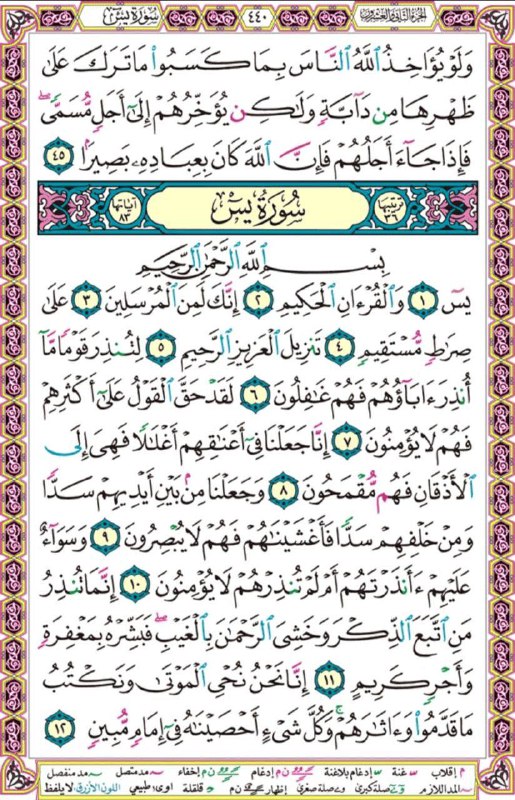 سورة يس ٤٤٠ الجزء الثاني والعشرون
وَلَوْ يُؤَاخِذُ ٱللَّهُ ٱلنَّاسَ بِمَا كَسَبُوا۟ مَا تَرَكَ عَلَىٰ
ظَهْرِهَا مِن دَآبَّةٍ وَلَٰكِن يُؤَخِّرُهُمْ إِلَىٰٓ أَجَلٍ مُّسَمًّى ۖ
فَإِذَا جَآءَ أَجَلُهُمْ فَإِنَّ ٱللَّهَ كَانَ بِعِبَادِهِۦ بَصِيرًۢا ٤٥
ترتيبها ٣٦ سُورَةُ يسٓ آياتها ٨٣
بِسْمِ ٱللَّهِ ٱلرَّحْمَٰنِ ٱلرَّحِيمِ
يسٓ ١ وَٱلْقُرْءَانِ ٱلْحَكِيمِ ٢ إِنَّكَ لَمِنَ ٱلْمُرْسَلِينَ ٣ عَلَىٰ
صِرَٰطٍ مُّسْتَقِيمٍ ٤ تَنزِيلَ ٱلْعَزِيزِ ٱلرَّحِيمِ ٥ لِتُنذِرَ قَوْمًا مَّآ
أُنذِرَ ءَابَآؤُهُمْ فَهُمْ غَٰفِلُونَ ٦ لَقَدْ حَقَّ ٱلْقَوْلُ عَلَىٰٓ أَكْثَرِهِمْ
فَهُمْ لَا يُؤْمِنُونَ ٧ إِنَّا جَعَلْنَا فِىٓ أَعْنَٰقِهِمْ أَغْلَٰلًا فَهِىَ إِلَى
ٱلْأَذْقَانِ فَهُم مُّقْمَحُونَ ٨ وَجَعَلْنَا مِنۢ بَيْنِ أَيْدِيهِمْ سَدًّا
وَمِنْ خَلْفِهِمْ سَدًّا فَأَغْشَيْنَٰهُمْ فَهُمْ لَا يُبْصِرُونَ ٩ وَسَوَآءٌ
عَلَيْهِمْ ءَأَنذَرْتَهُمْ أَمْ لَمْ تُنذِرْهُمْ لَا يُؤْمِنُونَ ١٠ إِنَّمَا تُنذِرُ
مَنِ ٱتَّبَعَ ٱلذِّكْرَ وَخَشِىَ ٱلرَّحْمَٰنَ بِٱلْغَيْبِ ۖ فَبَشِّرْهُ بِمَغْفِرَةٍ
وَأَجْرٍ كَرِيمٍ ١١ إِنَّا نَحْنُ نُحْىِ ٱلْمَوْتَىٰ وَنَكْتُبُ
مَا قَدَّمُوا۟ وَءَاثَٰرَهُمْ ۚ وَكُلَّ شَىْءٍ أَحْصَيْنَٰهُ فِىٓ إِمَامٍ مُّبِينٍ ١٢
م إقلاب غنة إدغام بلاغنة ن م إدغام ن م إخفاء مد متصل مد منفصل
المد اللازم صلة كبرى وصلة صغرى إظهار ن م قلقلة اوى؛ طبيعي اللون الأزرق لا يلفظ